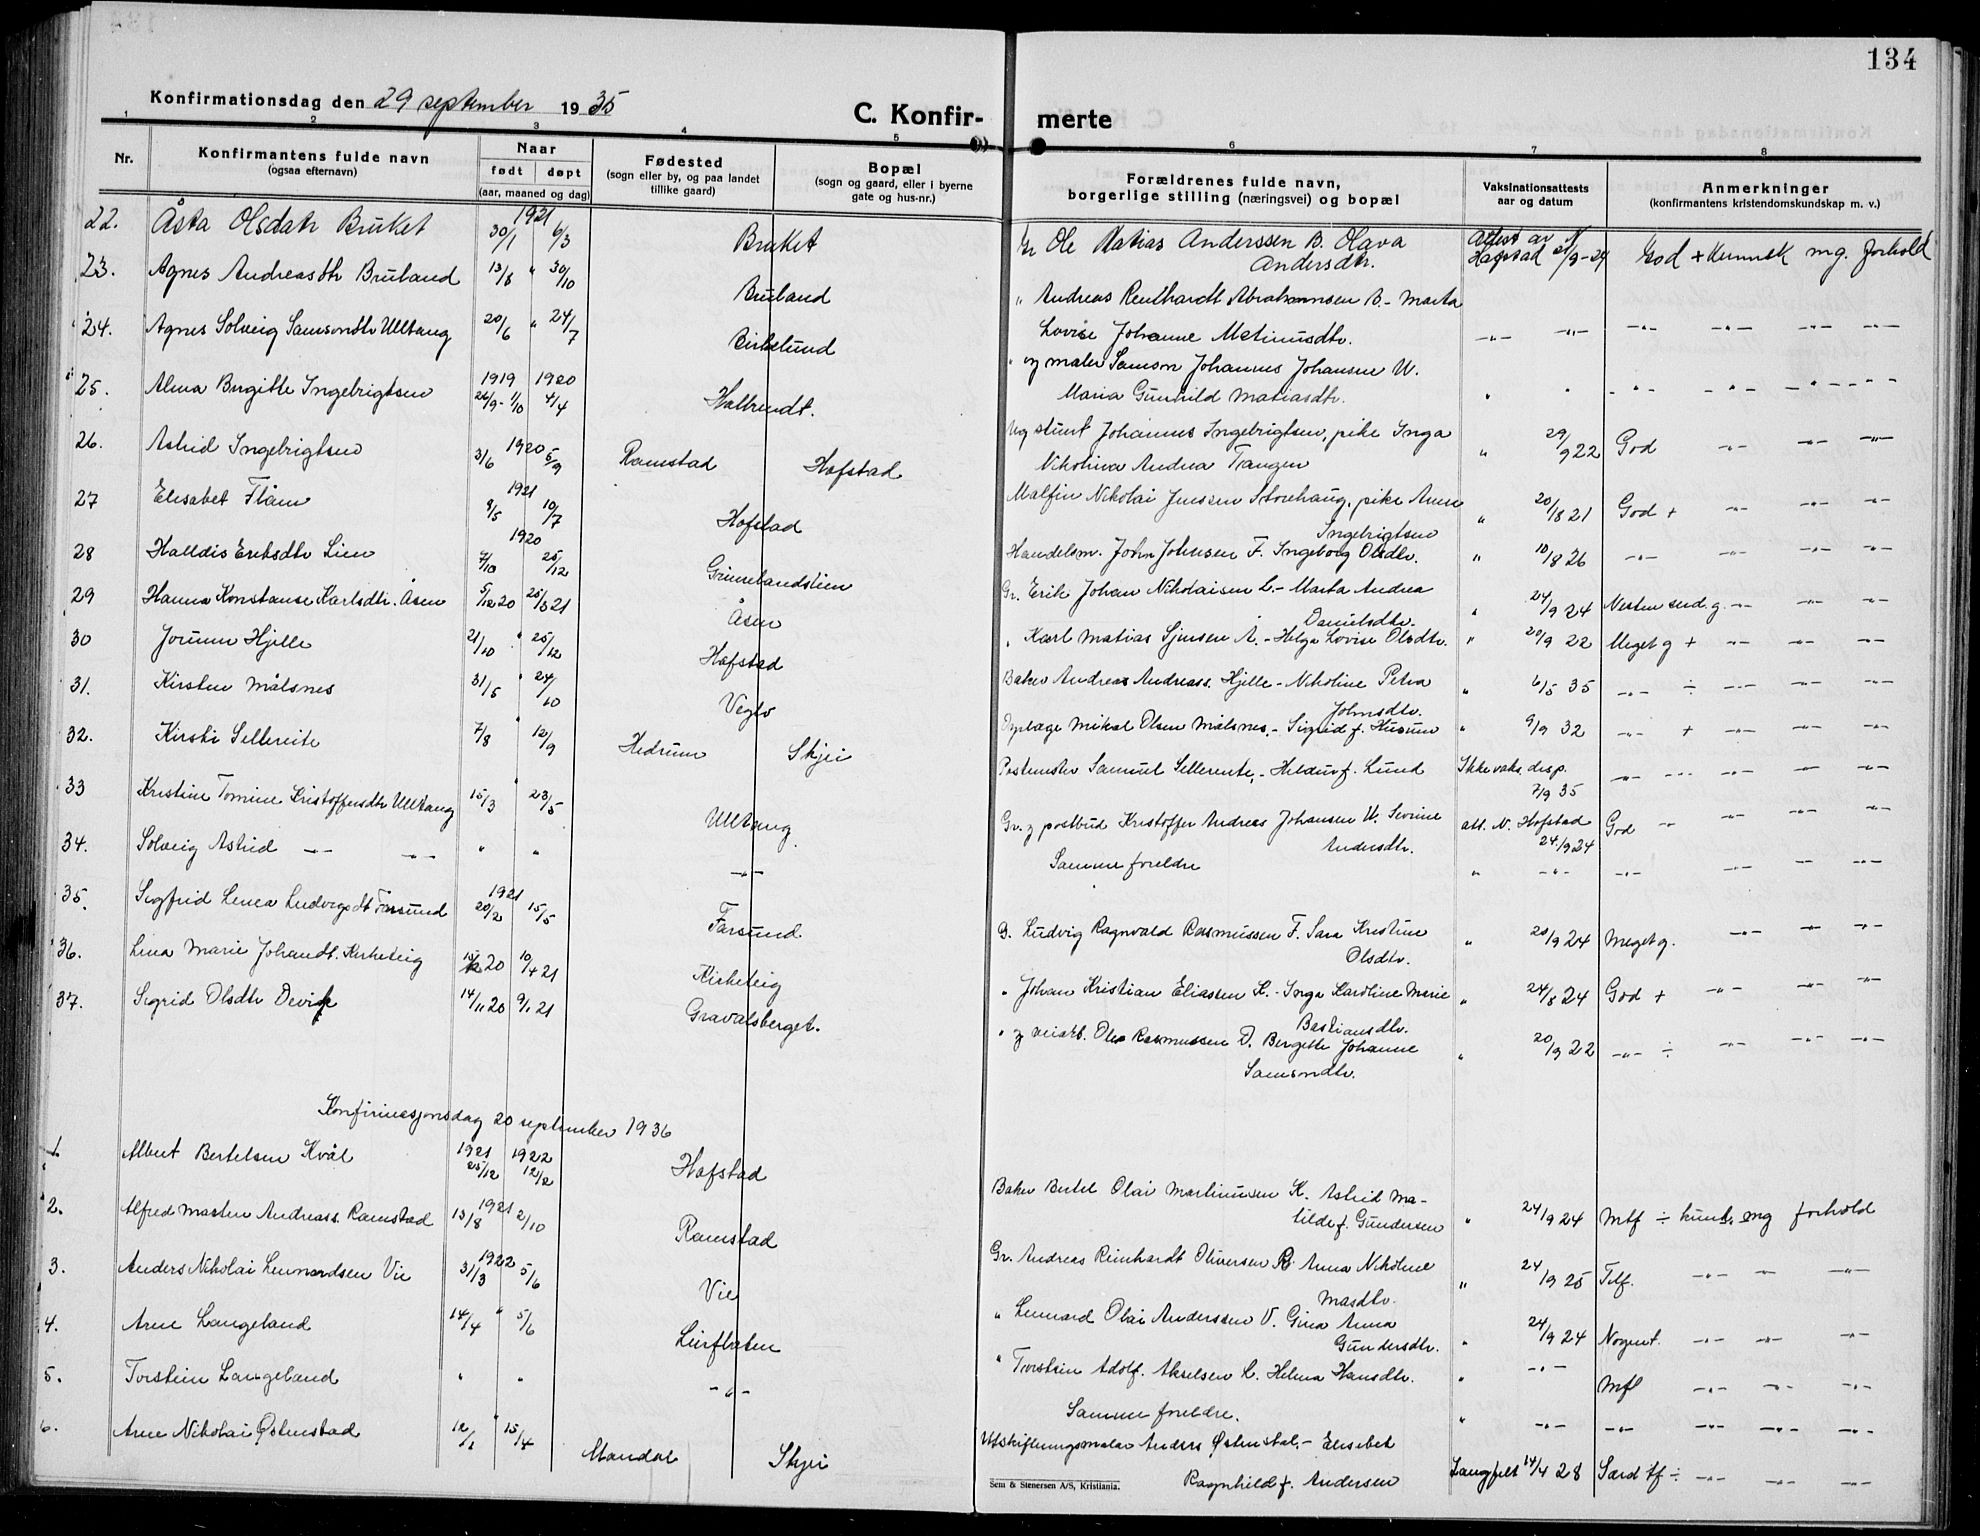 134
Konfirmationsdag den 29 september 1935
C. Konfir- merte
1 2 3 4 5 6 7 8
Nr.
Konfirmantens fulde navn
(ogsaa efternavn)
Naar
født døpt
(aar, maaned og dag)
Fødested
(sogn eller by, og paa landet
tillike gaard)
Bopæl
(sogn og gaard, eller i byerne
gate og hus-nr.)
Forældrenes fulde navn,
borgerlige stilling (næringsvei) og bopæl
Vaksinationsattests
aar og datum
Anmerkninger
(konfirmantens kristendomskundskap m. v.)
22. Åsta Olsdatr Bruket 1921 30/1 6/3 Bruket Gr Ole Matias Anderssen B. Olava
Andersdtr. Attest av N Hofstad 21/9-24 God + kunnsk mg. forhold
23. Agnes Andreasdtr Bruland 13/8 " 30/10 Bruland " Andreas Renthardt Abrahamsen B.- Marta
Lovise Johanne Metinusdtr. -"- -"- -"- -"- -"- -"-
24. Agnes Solveig Samsondtr Ulltang 20/6 " 24/7 Birkelund " og maler Samson Johannes Johansen U.
Maria Gunhild Matiasdtr. " " -"- -"- -"- -"-
25. Alma Birgitte Ingebrigtsen 1919 1920 26/9- 1/10 4/4 Halbrendt.
Ug stunt Johannes Ingebrigtsen, pike Inga
Nikoliva Andrea Tangen " 29/9 22 God -"- -"- -"-
26. Astrid Ingebrigtsen 1920 3/6 5/9 Ramstad Hofstad
Malfin Nikolai Jenssen Storehaug, pike Anne
Ingebrigtsen " 20/8 21 God + -"- -"- -"-
27 Elisabet Flåm 1921 9/5 10/7 Hofstad Handelsm. John Johnsen F. Ingeborg Olsdtr. " 10/8 26 -"- -"- -"- -"-
28 Halldis Eriksdtr Lien 1920 7/10 25/12 Grimelandslien Gr. Erik Johan Nikolaisen L.- Marta Andrea
Danielsdtr. " 24/9 24 Nesten serd. g. -"- -"- -"-
29 Hanna Konstanse Karlsdtr. Åsen 5/12 20 25/3 21 Åsen " Karl Matias Sjursen A.- Helga Lovise Olsdtr. " 20/9 22 Meget g + -"- -"- -"-
30 Jorunn Hjelle 21/10 " 25/12 Hofstad Baker Andreas Andreass. Hjelle- Nikoline Petra
Johnsdtr. " 6/5 35 -"- ÷ -"- -"- -"-
31. Kirsten Målsnes 31/5 " 24/10 Mikal Olsen Målsnes.- Sigrid f. Husum " 9/9 32 -"- + -"- -"- -"-
32. Kirsti Sellereite 7/8 " 12/9 Hedrum Skjei Postmester Samuel Sellereite,- Hildur f. Lund Ikke vaks. desp.
7/9 35 -"- -"- -"- -"-
33 Kristine Tomine Kristoffersdtr Ulltang 15/3 " 23/5 Ulltang Gr. og postbud Kristoffer Andreas Johansen U. Sevrine
Andersdtr. att. N. Hofstad
24/9 24 God -"- -"- -"- -"-
34. Solveig Astrid -"- -"- " " -"- Samme foreldre " -"- -"- -"- -"- -"-
35. Sigfrid Linea Ludvigsdt Farsund 1921 20/2 15/5 Farsund. G. Ludvig Ragnvald Rasmussen F. Sara Kristine
Olsdtr. " 20/9 24 Meget g. -"- -"- -"-
36. Lina Marie Johandt. Kirketeig 20 10/4 21 Kirketeig " Johan Kristian Eliassen K.- Inga Karoline Marie
Bastiansdtr. " 24/8 24 God + -"- -"- -"-
37. Sigrid Olsdtr Devik 14/11 20 9/1 21 Gravalsberget. " og veiarb. Ole Rasmussen D. Bergitte Johanne
Samsondtr. " 20/9 22 -"- ÷ -"- -"- -"-
Konfirmasjonsdag 20 september 1936
1 Albert Bertelsen Kvål 1921 1922 25/12 12/2 Hofstad Baker Bertel Olai Martinussen K. Astrid Ma-
tilde f. Gundersen " 24/9 24 Mtf ÷ kunt. mg forhold
2. Alfred Martin Andreass. Ramstad 1921 13/8 2/10 Ramstad Gr. Andreas Reinhardt Oliversen R. Anna Nikoline
Masdtr. " 24/9 25 Tilf. -"- -"- -"-
3. Anders Nikolai Lennardsen Vie 1922 31/3 5/6 Vie " Lennard Olai Anderssen V. Gina Anna
Gundersdtr. " 24/9 24 Nogent. -"- -"- -"-
4. Arne Langeland 14/4 " 5/6 " Torstein Adolf. Akselsen L. Helena Hansdtr. " -"- Mtf -"- -"- -"-
5. Torstein Langeland " " -"- Samme foreldre. " -"- -"- -"- -"- -"-
6. Arne Nikolai Østenstad 12/2 " 15/4 Mandal Skjei Utskiftningsmaler Anders Østenstad,- Elisabet
Ragnhild f. Andersen 14/4 28 Særd tf ÷ -"- -"- -"-
Sem & Stenersen A/S, Kristiania.